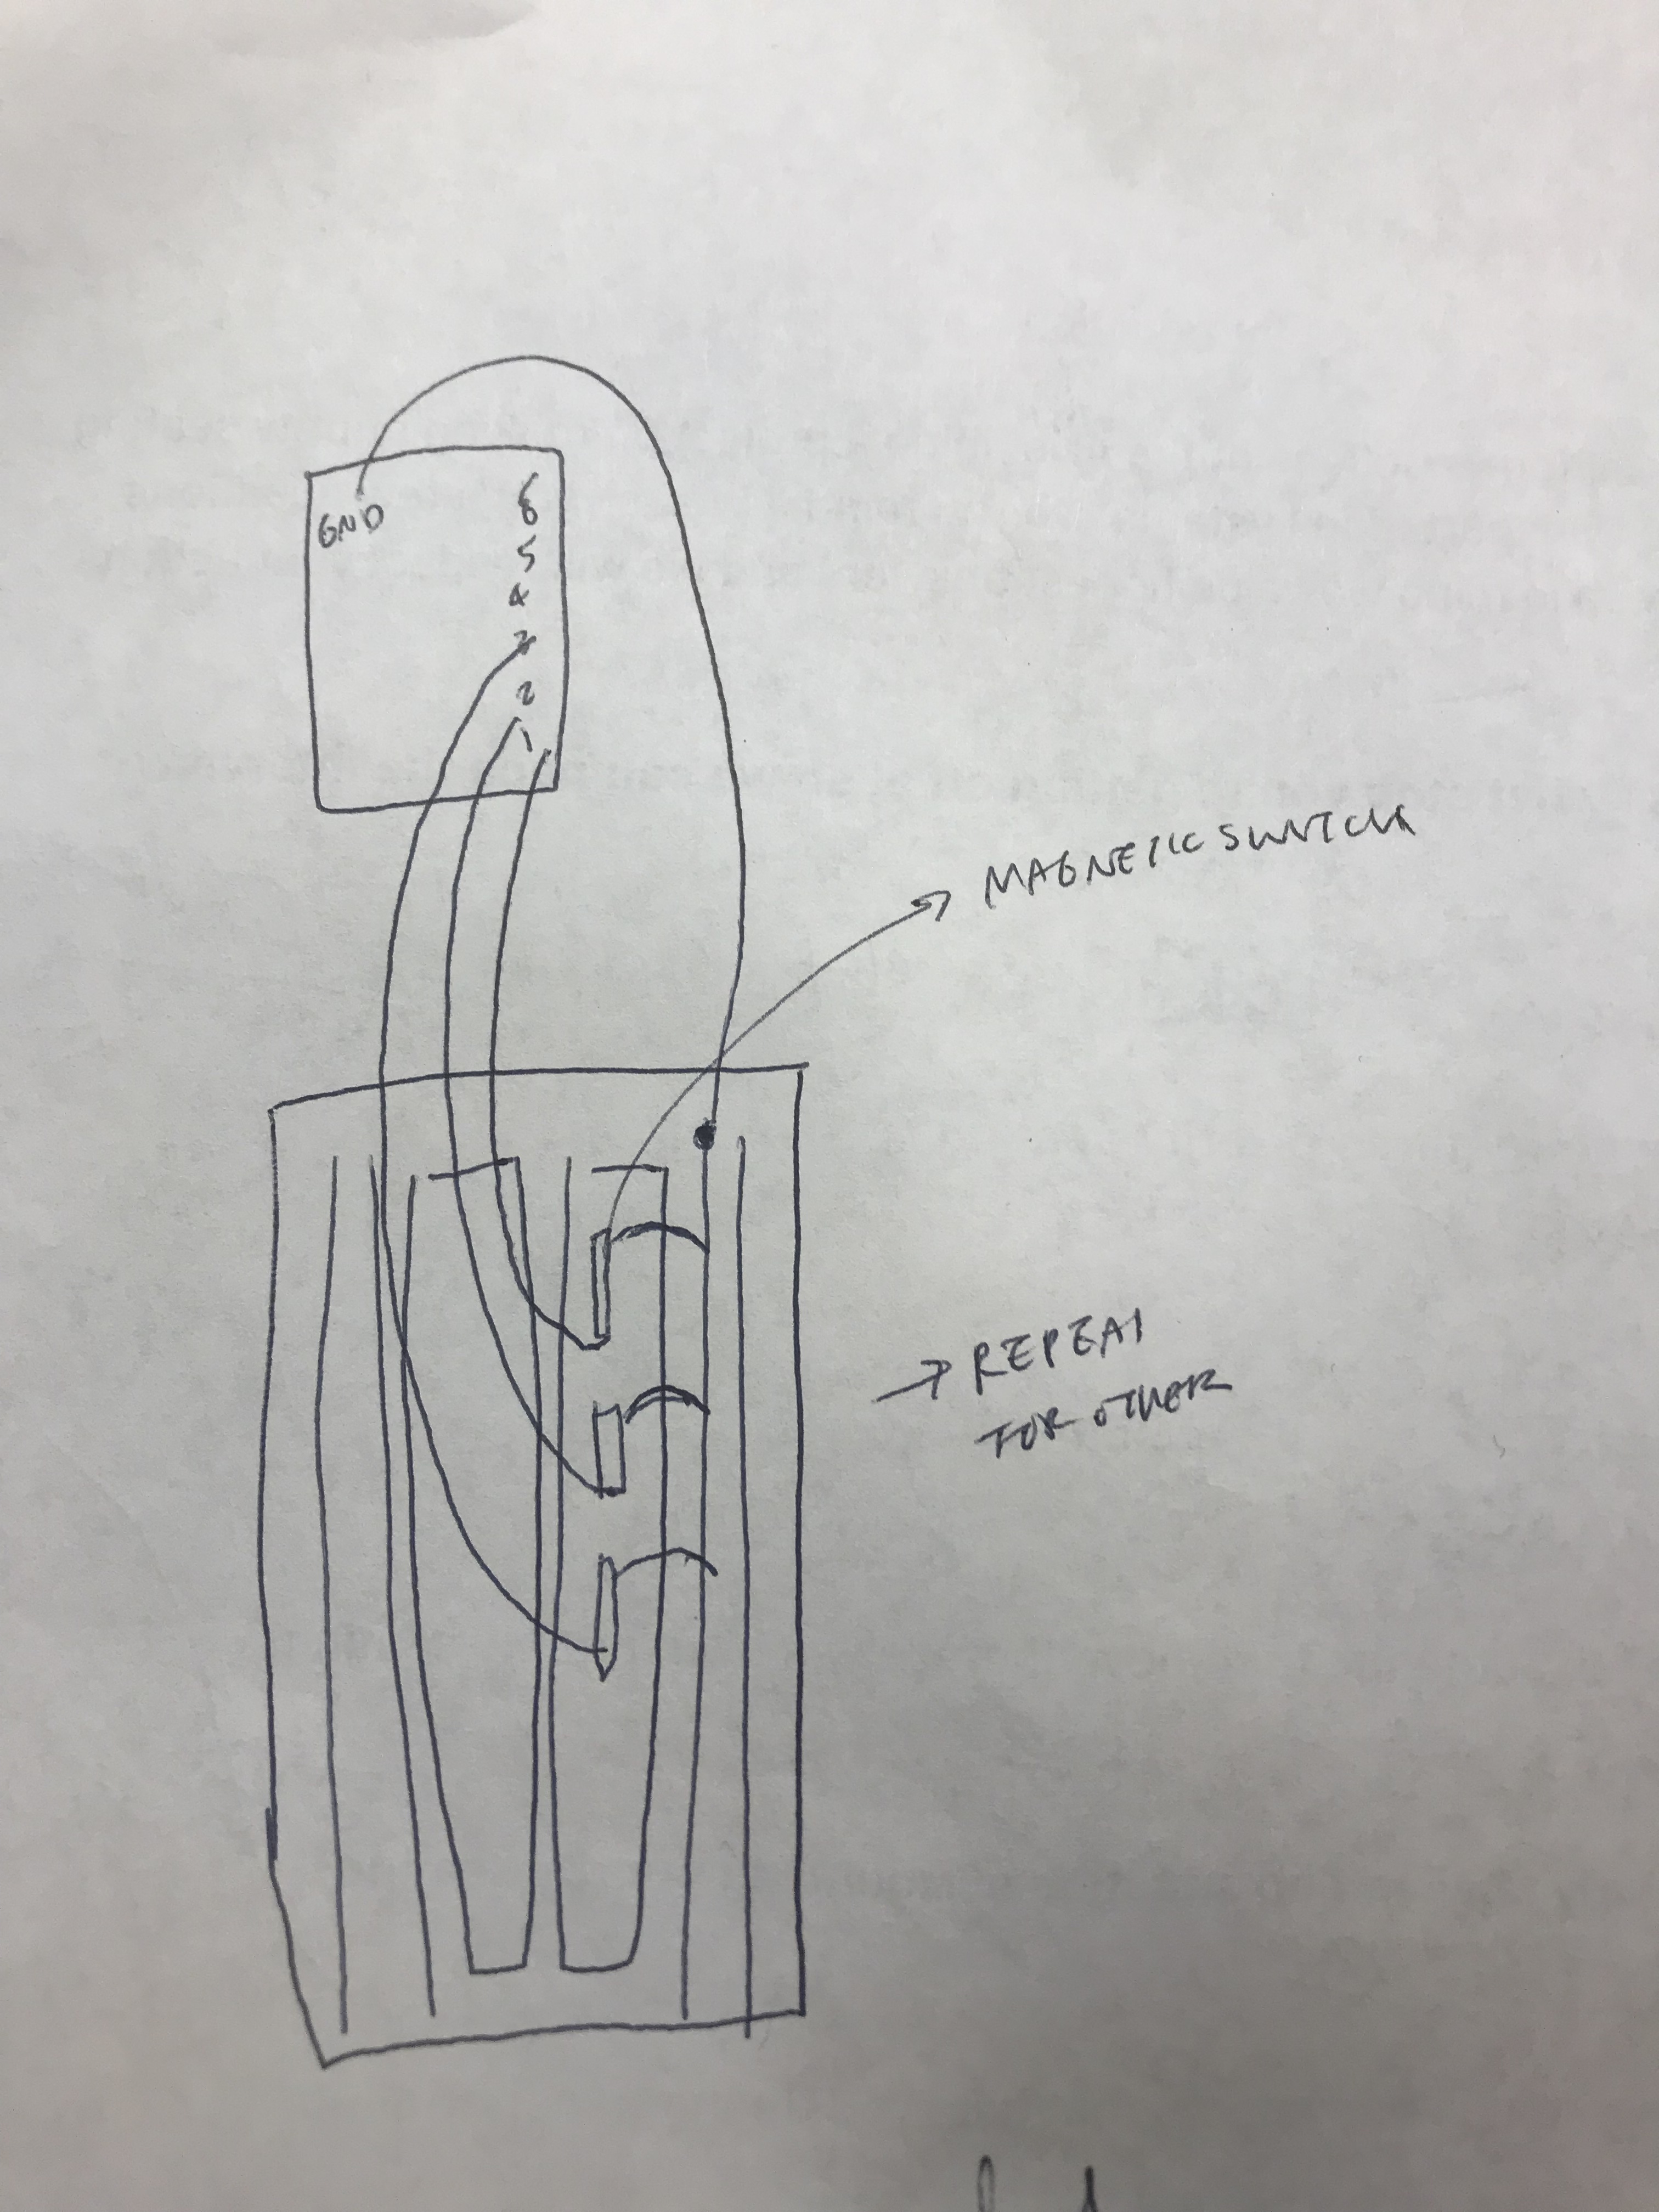 GND
6
5
4
3
2
1
MAGNETIC SWITCH
→ REPEAT
FOR OTHER